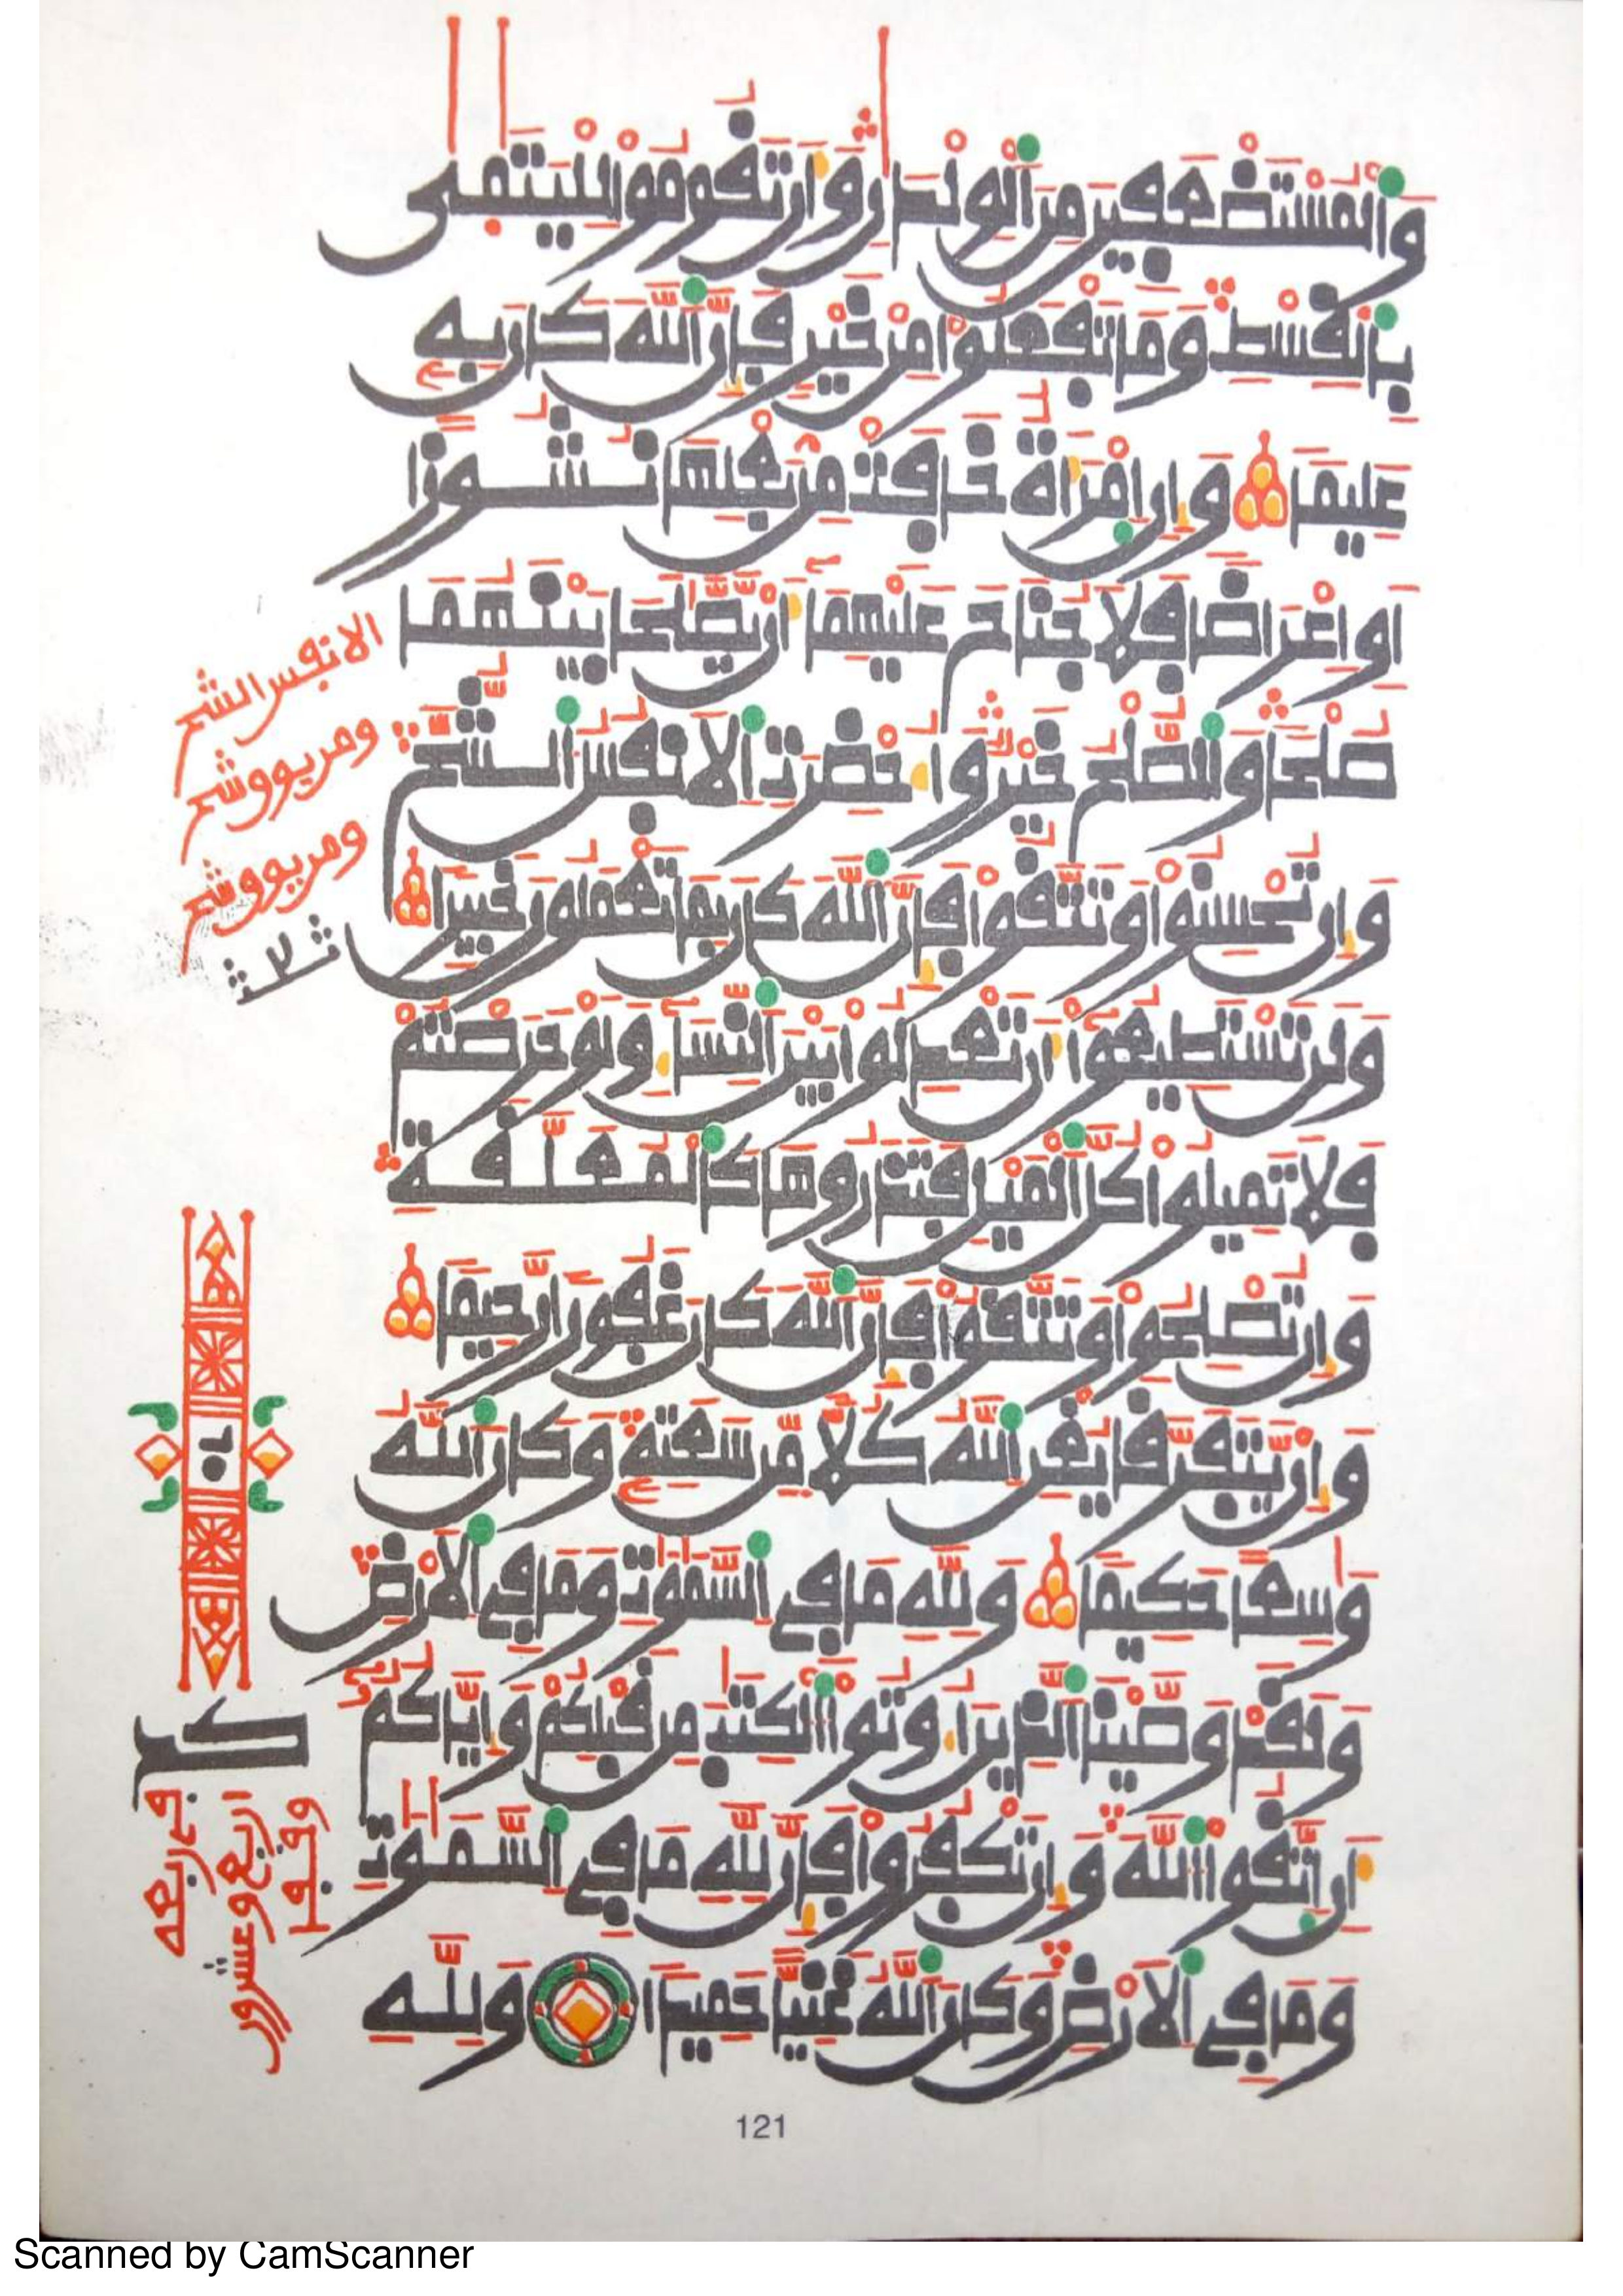 والمستضعفين من الولدان وان تقوموا لليتمى
بالقسط وما تفعلوا من خير فإن الله كان به
عليما وإن امرأة خافت من بعلها نشوزا
أو إعراضا فلا جناح عليهما أن يصلحا بينهما
صلحا والصلح خير وأحضرت الانفس الشح
وإن تحسنوا وتتقوا فإن الله كان بما تعملون خبيرا
ولن تستطيعوا أن تعدلوا بين النساء ولو حرصتم
فلا تميلوا كل الميل فتذروها كالمعلقة
وإن تصلحوا وتتقوا فإن الله كان غفورا رحيما
وإن يتفرقا يغن الله كلا من سعته وكان الله
وسعا حكيما ولله ما في السموت وما في الارض
ولقد وصينا الذين أوتوا الكتب من قبلكم وإياكم
أن اتقوا الله وإن تكفروا فإن لله ما في السموت
وما في الارض وكان الله غنيا حميدا ولله
الانفس الشح
ومن يوق شح
ومن يوق شح
ثلث
كد
اربع وعشرون
121
Scanned by CamScanner